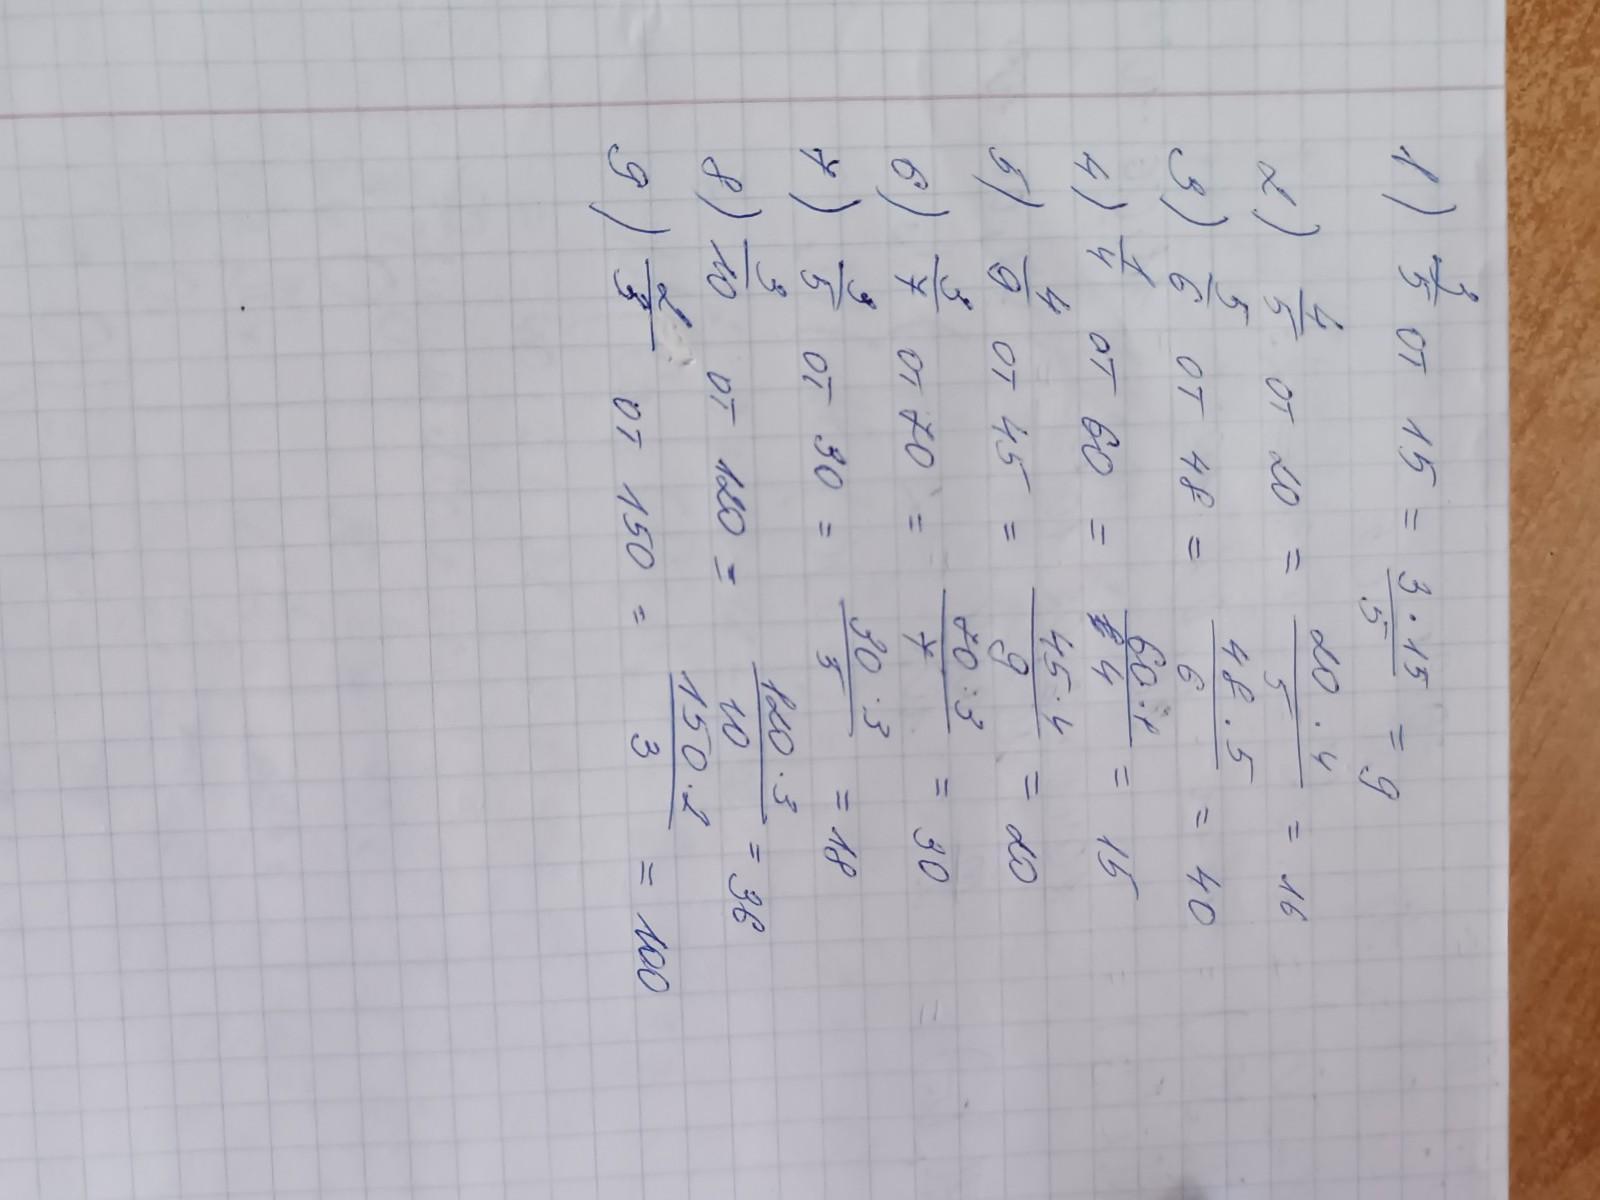 1) 3/5 от 15 = 3·15/5 = 9
2) 4/5 от 20 = 20·4/5 = 16
3) 5/6 от 48 = 48·5/6 = 40
4) 1/4 от 60 = 60·1/4 = 15
5) 4/9 от 45 = 45·4/9 = 20
6) 3/7 от 70 = 70·3/7 = 30
7) 3/5 от 30 = 30·3/5 = 18
8) 3/10 от 120 = 120·3/10 = 36
9) 2/3 от 150 = 150·2/3 = 100